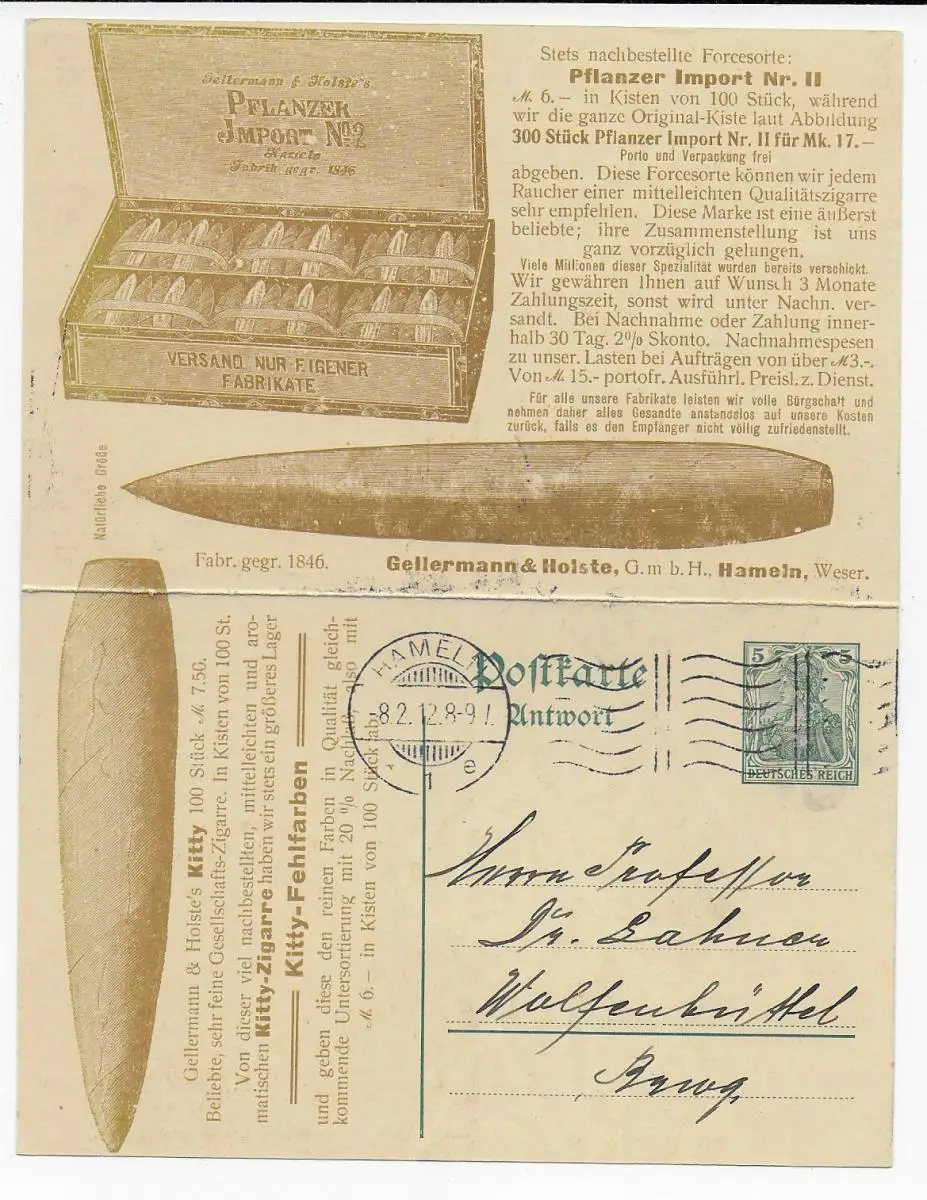 Gellermann & Holste's
PFLANZER
IMPORT No. 2
Hameln
Fabrik gegr. 1846
VERSAND NUR EIGENER
FABRIKATE
Stets nachbestellte Forcesorte:
Pflanzer Import Nr. II
M. 6.— in Kisten von 100 Stück, während
wir die ganze Original-Kiste laut Abbildung
300 Stück Pflanzer Import Nr. II für Mk. 17.—
Porto und Verpackung frei
abgeben. Diese Forcesorte können wir jedem
Raucher einer mittelleichten Qualitätszigarre
sehr empfehlen. Diese Marke ist eine äußerst
beliebte; ihre Zusammenstellung ist uns
ganz vorzüglich gelungen.
Viele Millionen dieser Spezialität wurden bereits verschickt.
Wir gewähren Ihnen auf Wunsch 3 Monate
Zahlungszeit, sonst wird unter Nachn. ver-
sandt. Bei Nachnahme oder Zahlung inner-
halb 30 Tag. 2% Skonto. Nachnahmespesen
zu unser. Lasten bei Aufträgen von über M 3.-.
Von M. 15.- portofr. Ausführl. Preisl. z. Dienst.
Für alle unsere Fabrikate leisten wir volle Bürgschaft und
nehmen daher alles Gesandte anstandslos auf unsere Kosten
zurück, falls es den Empfänger nicht völlig zufriedenstellt.
Natürliche Größe
Fabr. gegr. 1846.
Gellermann & Holste, G. m b. H., Hameln, Weser.
Gellermann & Holste's Kitty 100 Stück M. 7.50.
Beliebte, sehr feine Gesellschafts-Zigarre. In Kisten von 100 St.
Von dieser viel nachbestellten, mittelleichten und aro-
matischen Kitty-Zigarre haben wir stets ein größeres Lager
Kitty-Fehlfarben
und geben diese den reinen Farben in Qualität gleich-
kommende Untersortierung mit 20 % Nachlaß, also mit
M. 6.— in Kisten von 100 Stück ab.
HAMELN
-8.2.12.8-9
1 e
Postkarte
Antwort
5 5
DEUTSCHES REICH
Herrn Professor
Dr. Lahner
Wolfenbüttel